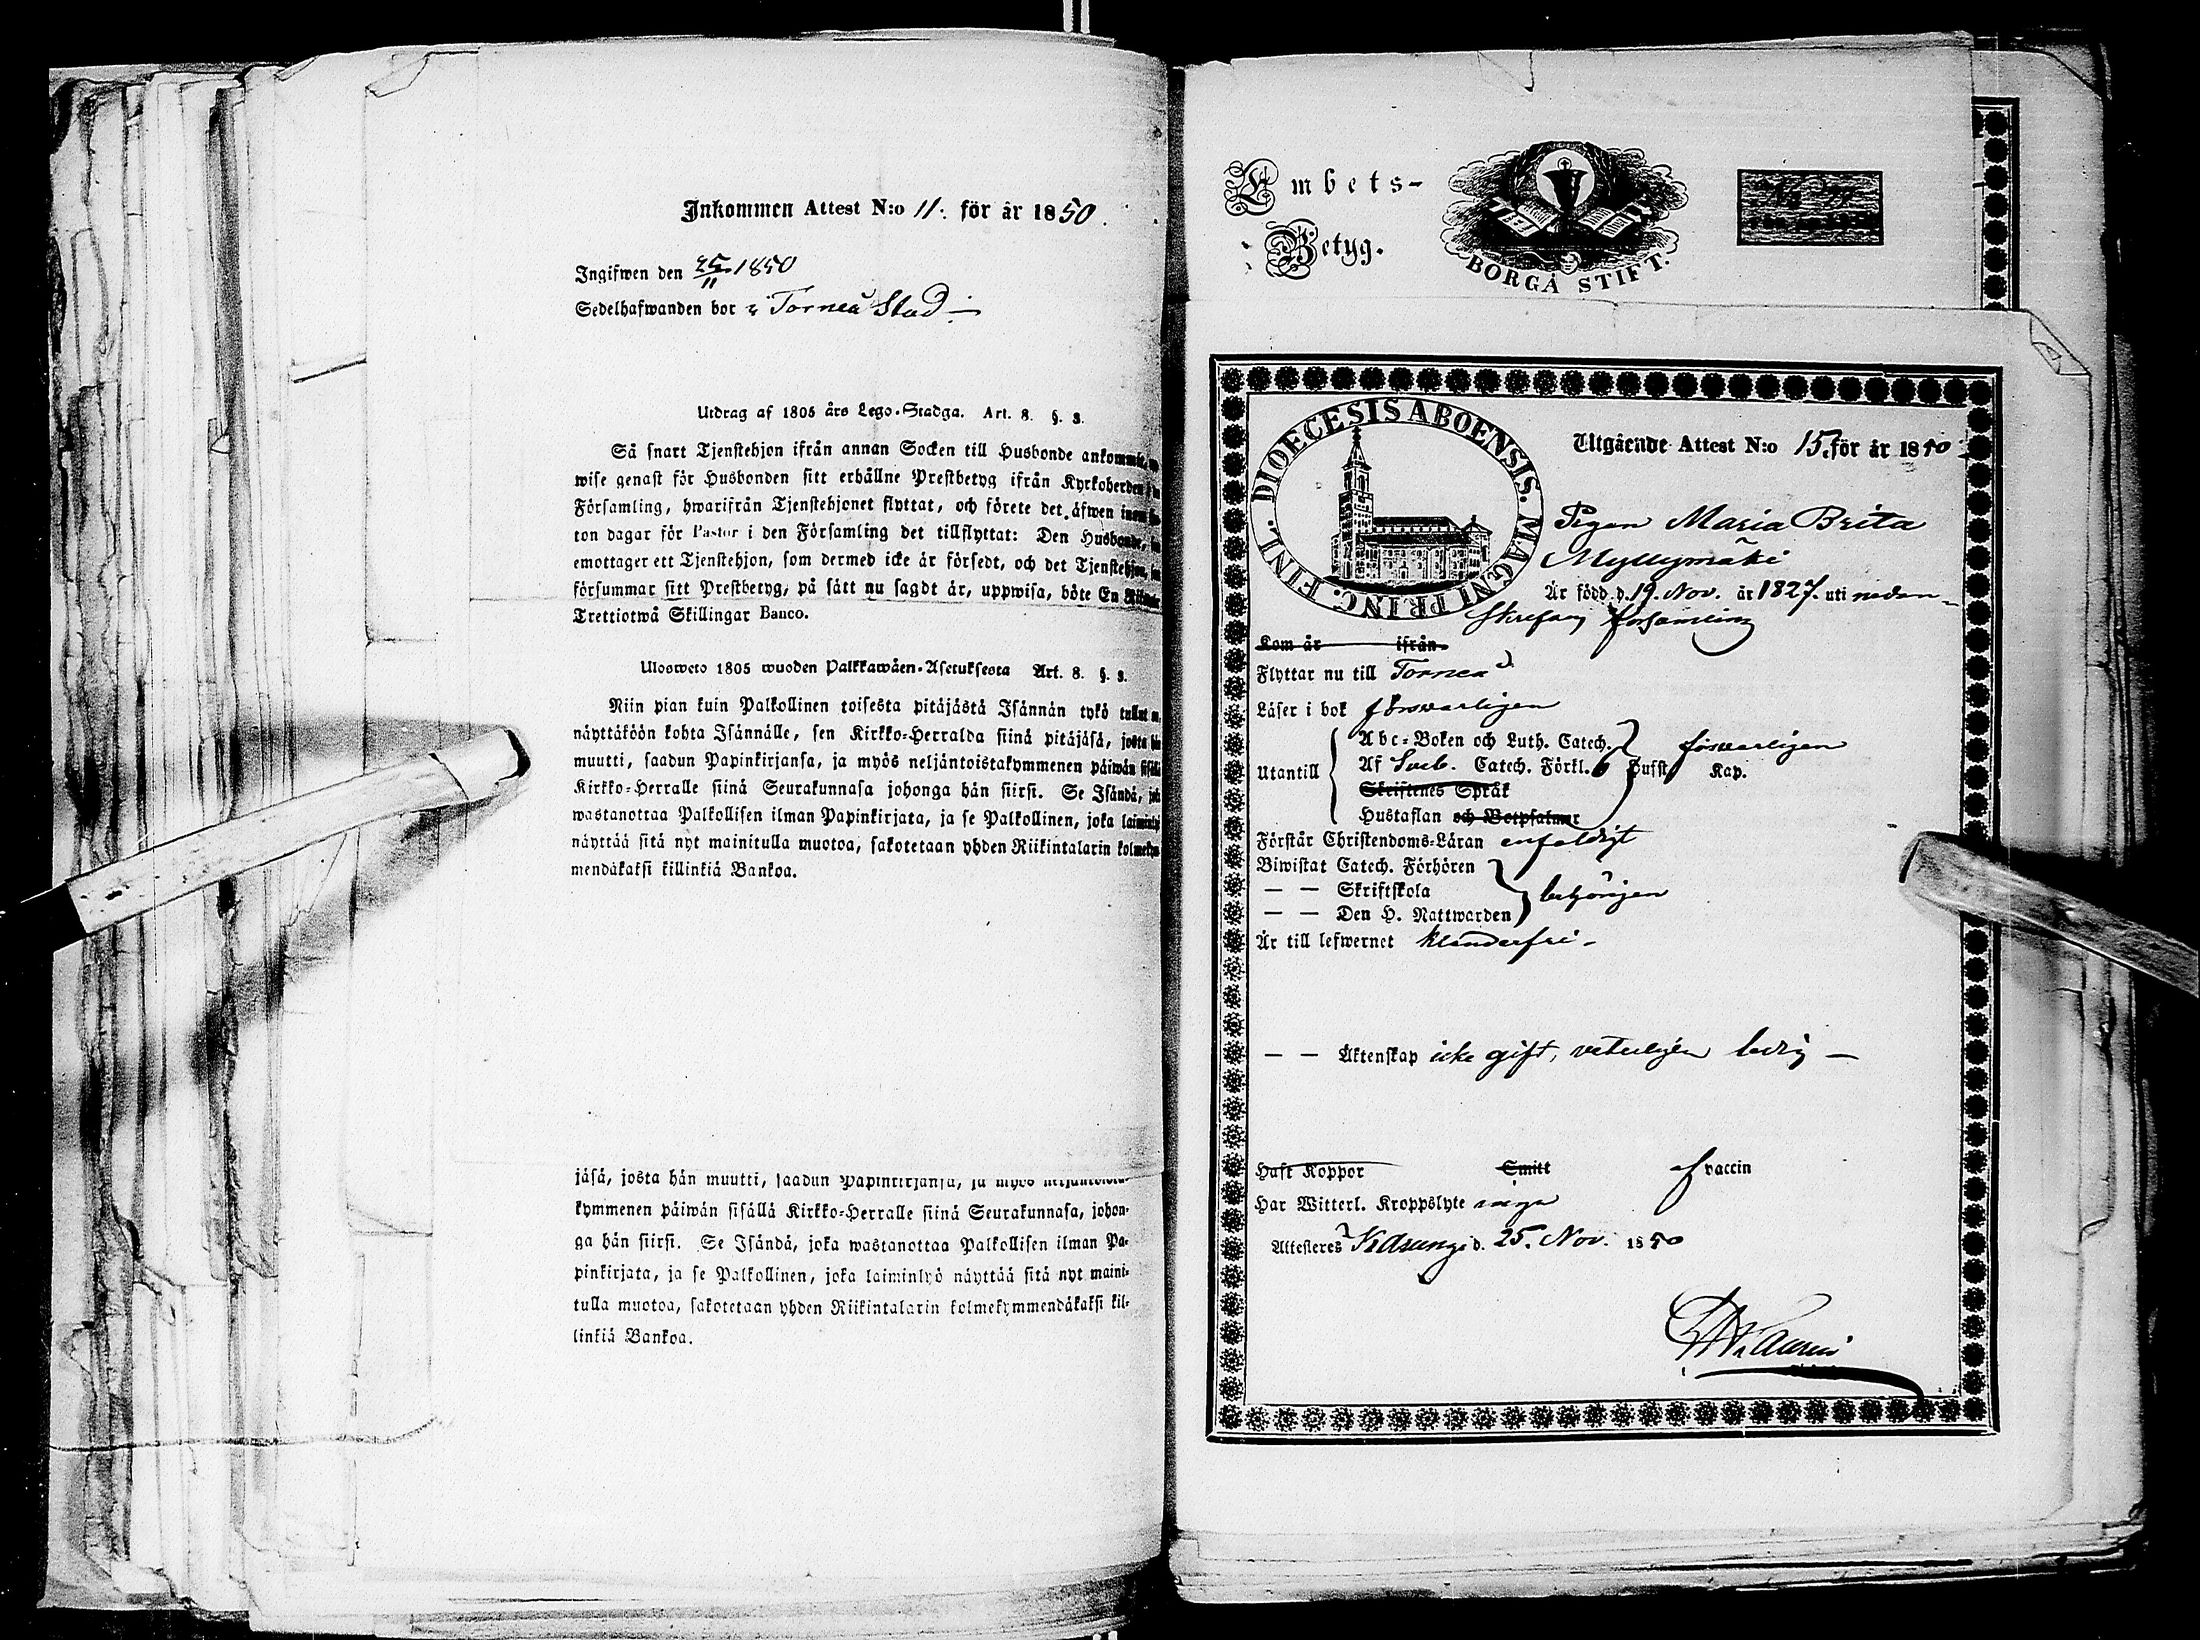 Inkommen Attest N:o 11. för år 1850.
Ingifwen den 25/11 1850
Sedelhafwanden bor i Torneå Stad
Utdrag af 1805 års Lego-Stadga. Art. 8. §. 3.
Så snart Tjenstehjon ifrån annan Socken till Husbonde
wise genast för Husbonden sitt erhållne Prestbetyg ifrån Kyrkoherden
Församling, hwarifrån Tjenstehjonet flyttat, och förete det äfwen
ton dagar för Pastor i den Församling det tillflyttat: Den
emottager ett Tjenstehjon, som dermed icke är försedt, och det
försummar sitt Prestbetyg, på sätt nu sagdt är, uppwisa, böte En
Trettiotwå Skillingar Banco.
Ulosweto 1805 wuoden Palkkawäen-Asetuksesta Art. 8. §. 3.
Niin pian kuin Palkollinen toisesta pitäjästä Isännän tykö tullut
näyttäköön kohta Isännälle, sen Kirkko-Herralda siinä pitäjäsä, josta
muutti, saadun Papinkirjansa, ja myös neljäntoistakymmenen päiwän
Kirkko-Herralle siinä Seurakunnasa johonga hän siirsi. Se Isändä,
wastanottaa Palkollisen ilman Papinkirjata, ja se Palkollinen, joka
näyttää sitä nyt mainitulla muotoa, sakotetaan yhden Riikintalarin
mendäkaksi killinkiä Bankoa.
jäsä, josta hän muutti, saadun Papinkirjansa, ja myös
kymmenen päiwän sisällä Kirkko-Herralle siinä Seurakunnasa, johon-
ga hän siirsi. Se Isändä, joka wastanottaa Palkollisen ilman Pa-
pinkirjata, ja se Palkollinen, joka laiminlyö näyttää sitä nyt maini-
tulla muotoa, sakotetaan yhden Riikintalarin kolmekymmendäkaksi kil-
linkiä Bankoa.
Embets-
Betyg.
BORGÅ STIFT.
DIOECESIS ABOENSIS. MAGNI PRINC. FINL.
Utgående Attest N:o 15. för år 1850
Pigan Maria Brita
Myllymäki
Är född d. 19. Nov. år 1827. uti nedan-
Skrefvan församling
Kom år ifrån
Flyttar nu till Torneå
Läser i bok försvarligen
Utantill
Abc-Boken och Luth. Catech.
Af Sveb. Catech. Förkl. Kap.
försvarligen
Skriftenes Språk
Hustaflan och Botpsalmer
Förstår Christendoms-Läran enfaldigt
Biwistat Catech. Förhören
— — Skriftskola
— — Den H. Nattwarden
behörigen
Är till lefwernet klanderfri -
— — Äktenskap icke gift, veterligen ledig —
Haft Koppor Smitt vaccin
Har Witterl. Kroppslyte inga
Attesteres Karungi d. 25. Nov. 1850